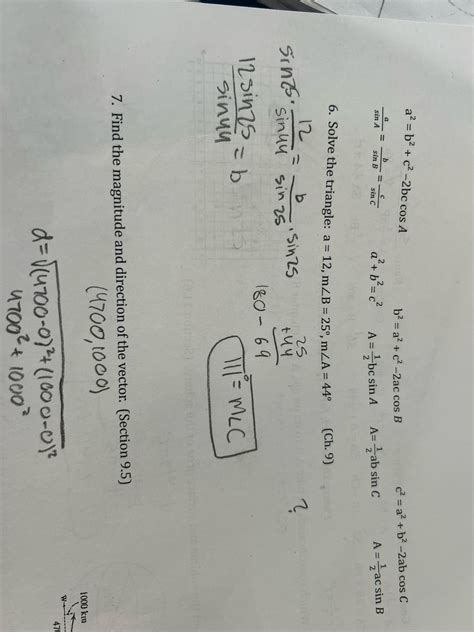 a² = b² + c² –2bc cos A
b² = a² + c² –2ac cos B
c² = a² + b² –2ab cos C
a/sin A = b/sin B = c/sin C
a² + b² = c²
A = 1/2 bc sin A
A = 1/2 ab sin C
A = 1/2 ac sin B
6. Solve the triangle: a = 12, m∠B = 25°, m∠A = 44° (Ch. 9)
sin25 · 12/sin44 = b/sin25 · sin25
12sin25/sin44 = b
25
+44
180 – 69
111° = m∠C
?
7. Find the magnitude and direction of the vector. (Section 9.5)
(4700,1000)
d=√(4700-0)²+(1000-0)²
4700² + 1000²
1000 km
W